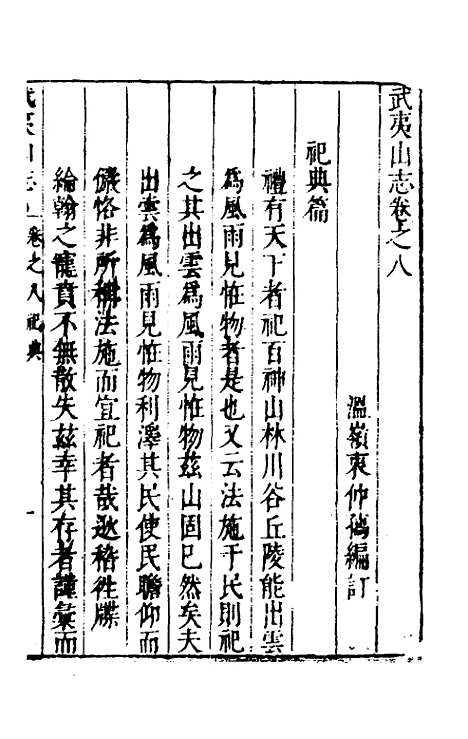 武夷山志卷之八
溫嶺衷仲孺編訂
祀典篇
禮有天下者祀百神山林川谷丘陵能出雲
為風雨見怪物者是也又云法施于民則祀
之其出雲為風雨見怪物茲山固已然矣夫
出雲為風雨見怪物利澤其民使民瞻仰而
儀恪非所稱法施而宜祀者哉逖稽往牒
綸翰之寵賁不無散失茲幸其存者謹彙而
武夷山志 卷之八 祀典 一